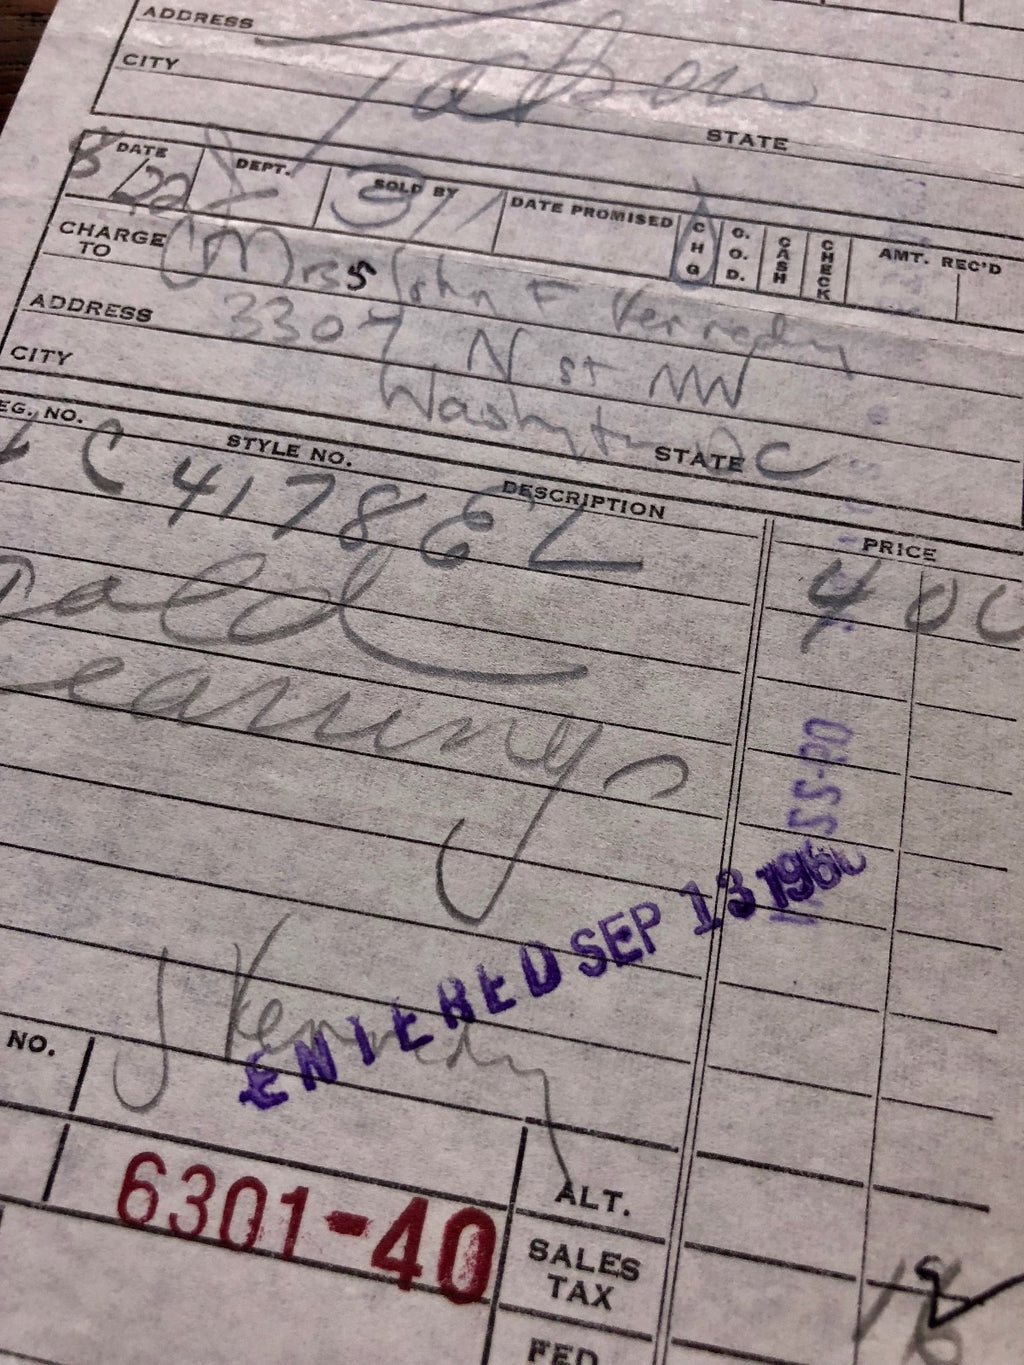 ADDRESS
CITY
STATE
DATE DEPT. SOLD BY DATE PROMISED CHG C.O.D. CASH CHECK AMT. REC'D
8/22
CHARGE TO Mrs John F Kennedy
ADDRESS 3307 N st NW
CITY Washington STATE DC
STYLE NO. DESCRIPTION PRICE
C 4178 E L 4 00
Gold
earrings
SS-PO
ENTERED SEP 13 1960
J Kennedy
NO.
6301-40
ALT.
SALES TAX
FED